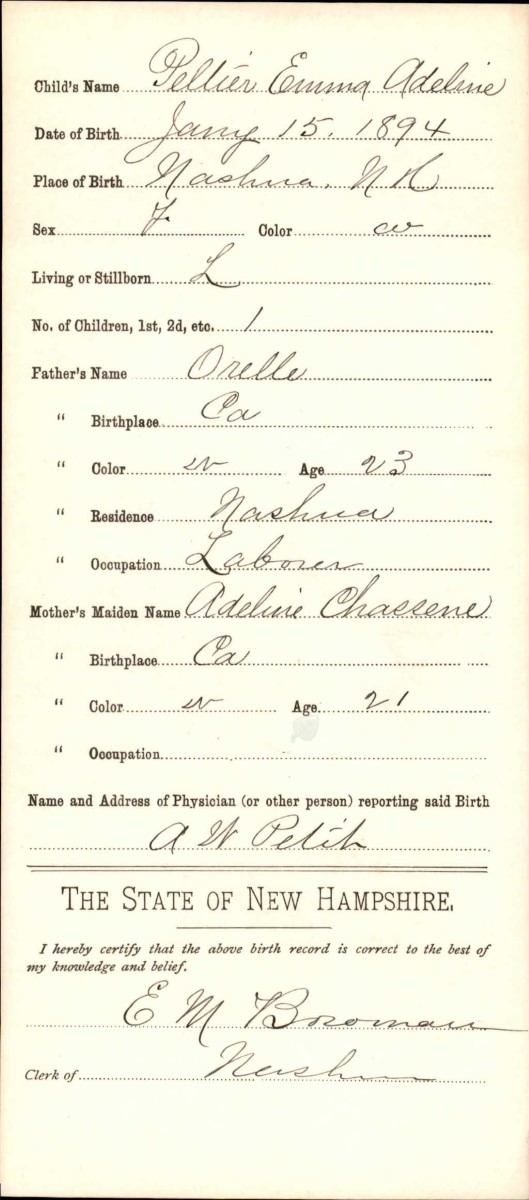 Child's Name Peltier Emma Adeline
Date of Birth Jany 15. 1894
Place of Birth Nashua, N H
Sex F Color w
Living or Stillborn L
No. of Children, 1st, 2d, etc. 1
Father's Name Orelle
" Birthplace Ca
" Color w Age 23
" Residence Nashua
" Occupation Laborer
Mother's Maiden Name Adeline Chassene
" Birthplace Ca
" Color w Age 21
" Occupation
Name and Address of Physician (or other person) reporting said Birth
A W Petit
THE STATE OF NEW HAMPSHIRE.
I hereby certify that the above birth record is correct to the best of
my knowledge and belief.
E M Bowman
Clerk of Nashua